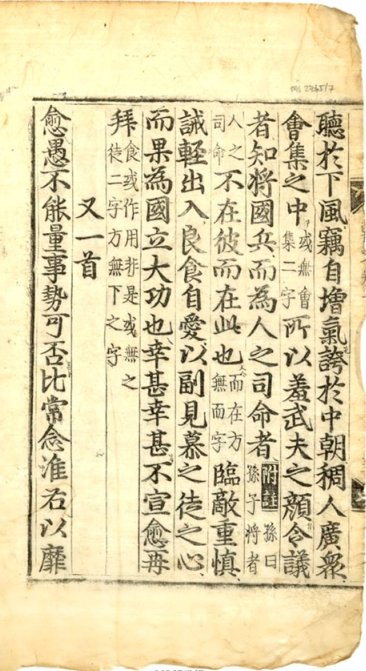 聽於下風竊自增氣誇於中朝稠人廣衆
會集之中或無會集二字所以羞武夫之顔令議
者知將國兵而為人之司命者附註孫曰孫子將者
人之司命不在彼而在此也而在方無而字臨敵重慎
誡輕出入良食自愛以副見慕之徒之心
而果為國立大功也幸甚幸甚不宣愈再
拜食或作用非是或無之徒二字方無下之字
又一首
愈愚不能量事勢可否比常念淮右以靡